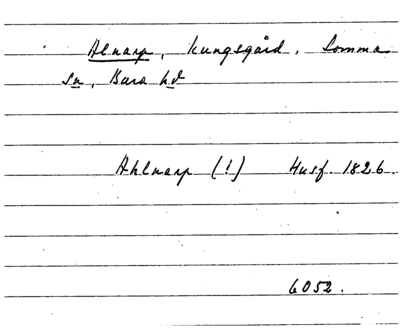 Alnarp, kungsgård, Lomma
sn, Bara hd
Ahlnarp (!) Husf. 1826.
6052.